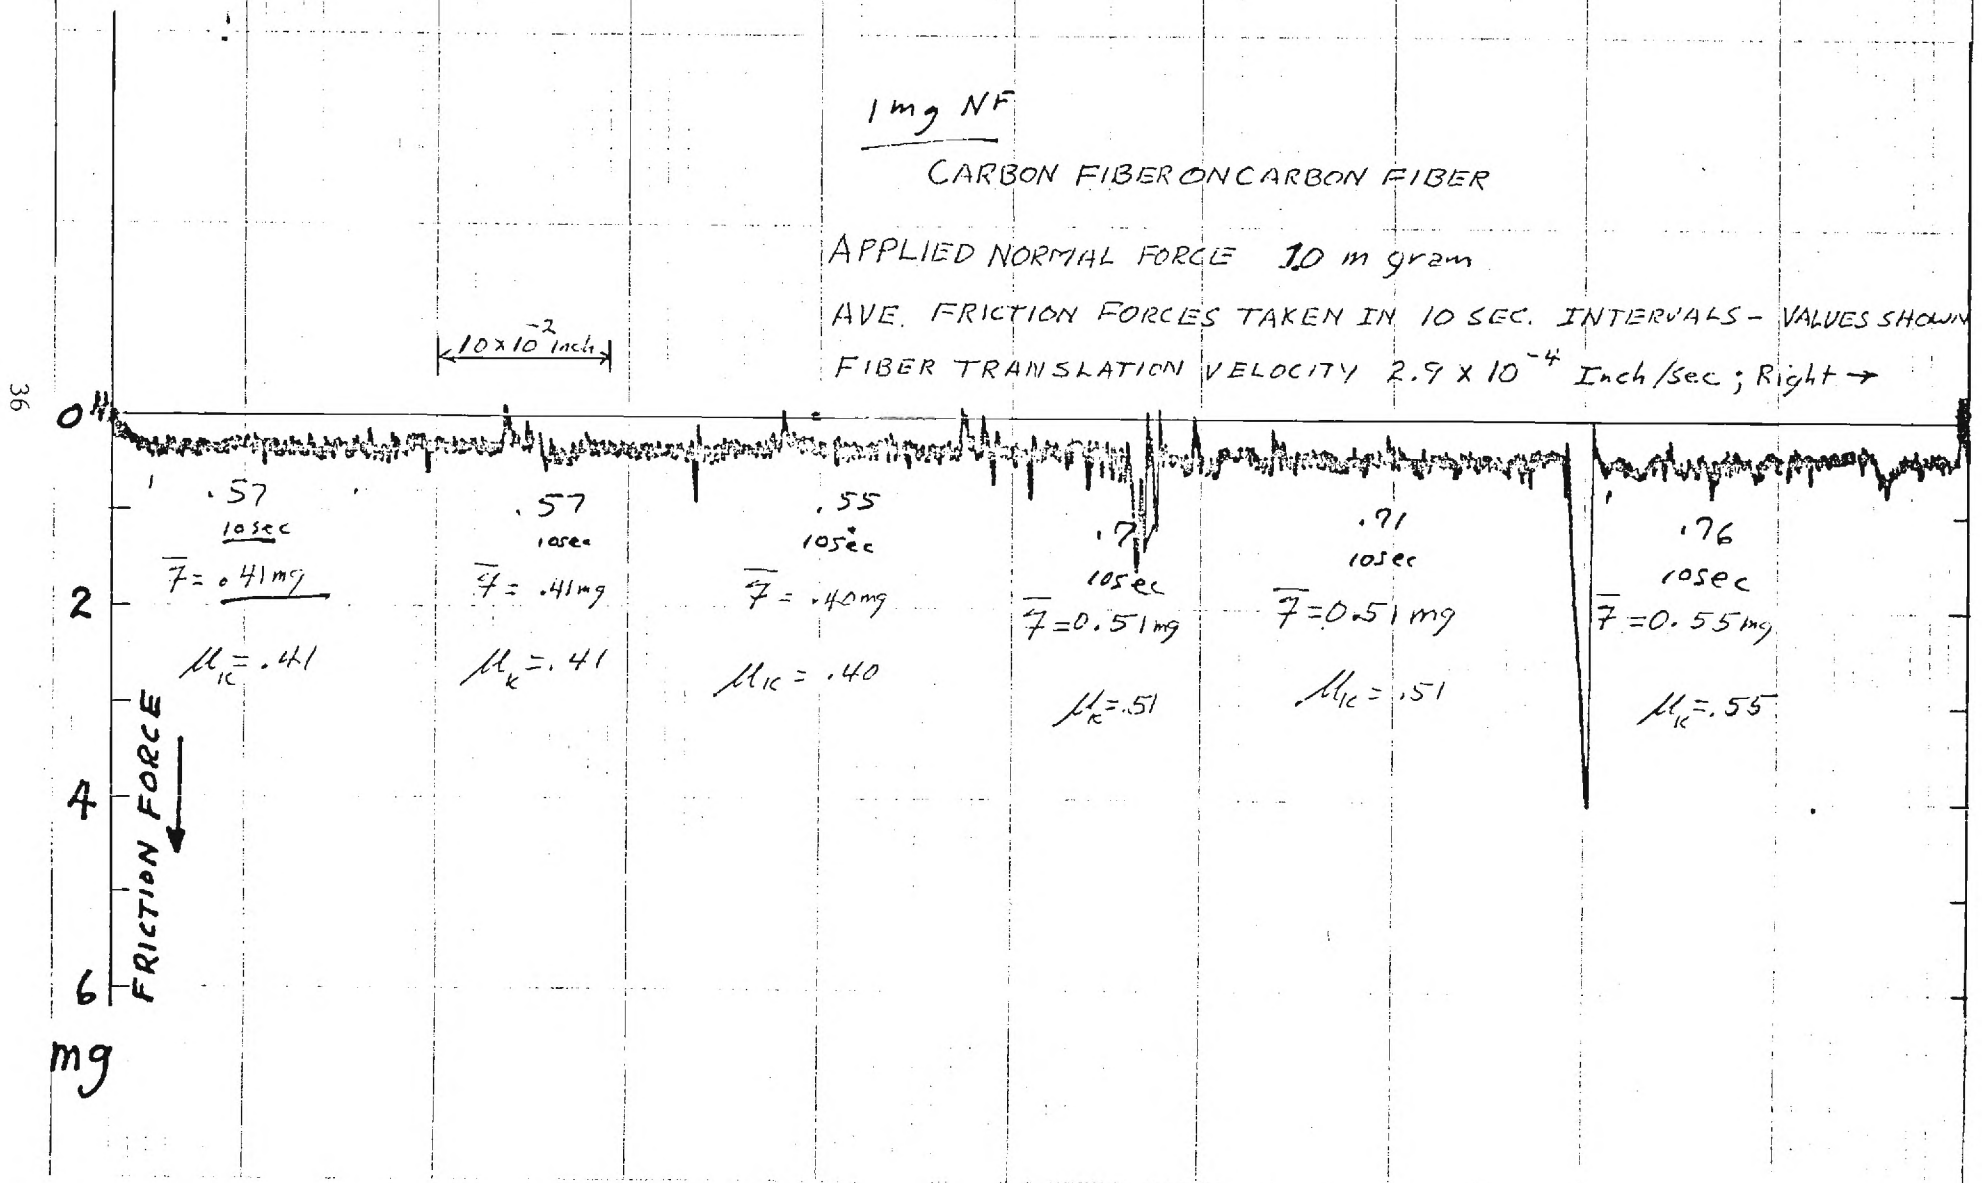 1 mg NF
CARBON FIBER ON CARBON FIBER
APPLIED NORMAL FORCE 1.0 m gram
AVE. FRICTION FORCES TAKEN IN 10 SEC. INTERVALS - VALUES SHOWN
FIBER TRANSLATION VELOCITY 2.9 x 10⁻⁴ Inch/sec; Right →
10 x 10⁻² inch
36
0
2
4
6
mg
FRICTION FORCE
.57
10sec
f̄ = .41mg
μk = .41
.57
10sec
f̄ = .41mg
μk = .41
.55
10sec
f̄ = .40mg
μk = .40
.7
10sec
f̄ = 0.51mg
μk = .51
.71
10sec
f̄ = 0.51mg
μk = .51
.76
10sec
f̄ = 0.55mg
μk = .55